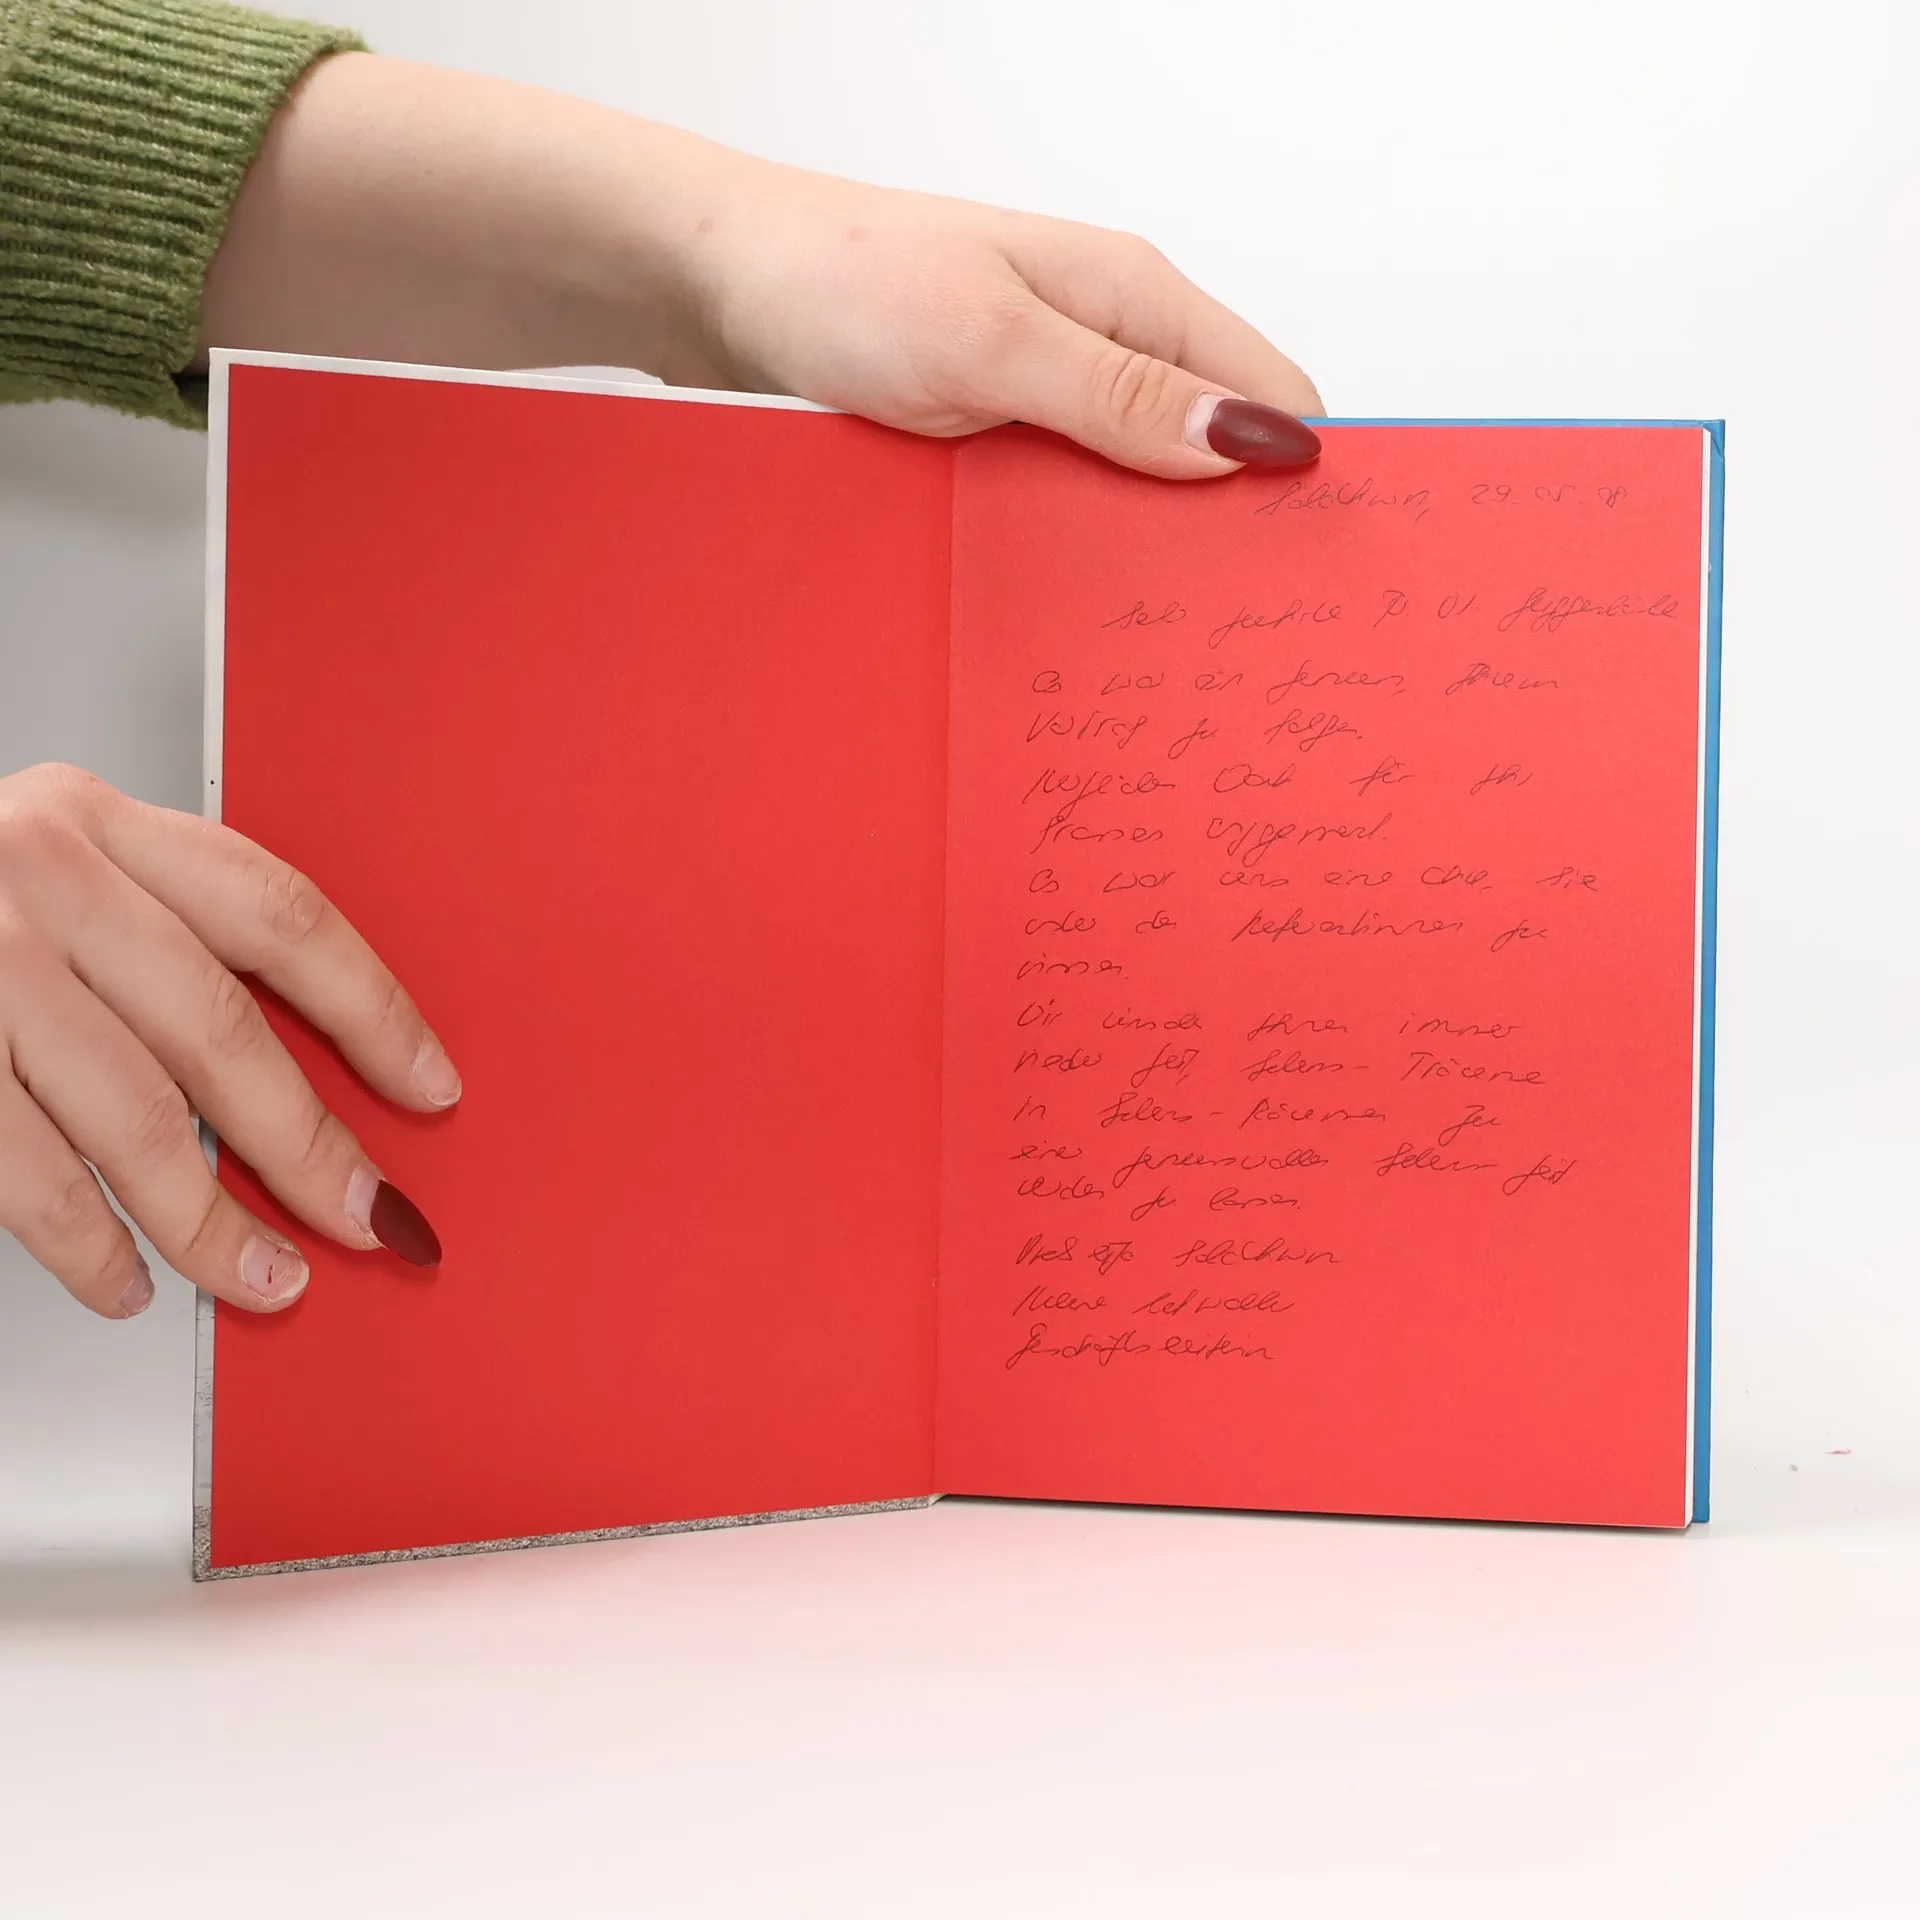 29.05.08
Sehr geehrte
Es war ein Genuss, Ihrem
Vortrag zu folgen.
Dank für Ihr
grosses Engagement.
Es war uns eine Ehre, Sie
unter den Referentinnen zu
wissen.
Wir wünschen Ihnen immer
wieder Zeit, Lebens-Träume
in Lebens-Räumen zu
einer genussvollen Lebens-Zeit
werden zu lassen.
Geschäftsleiterin